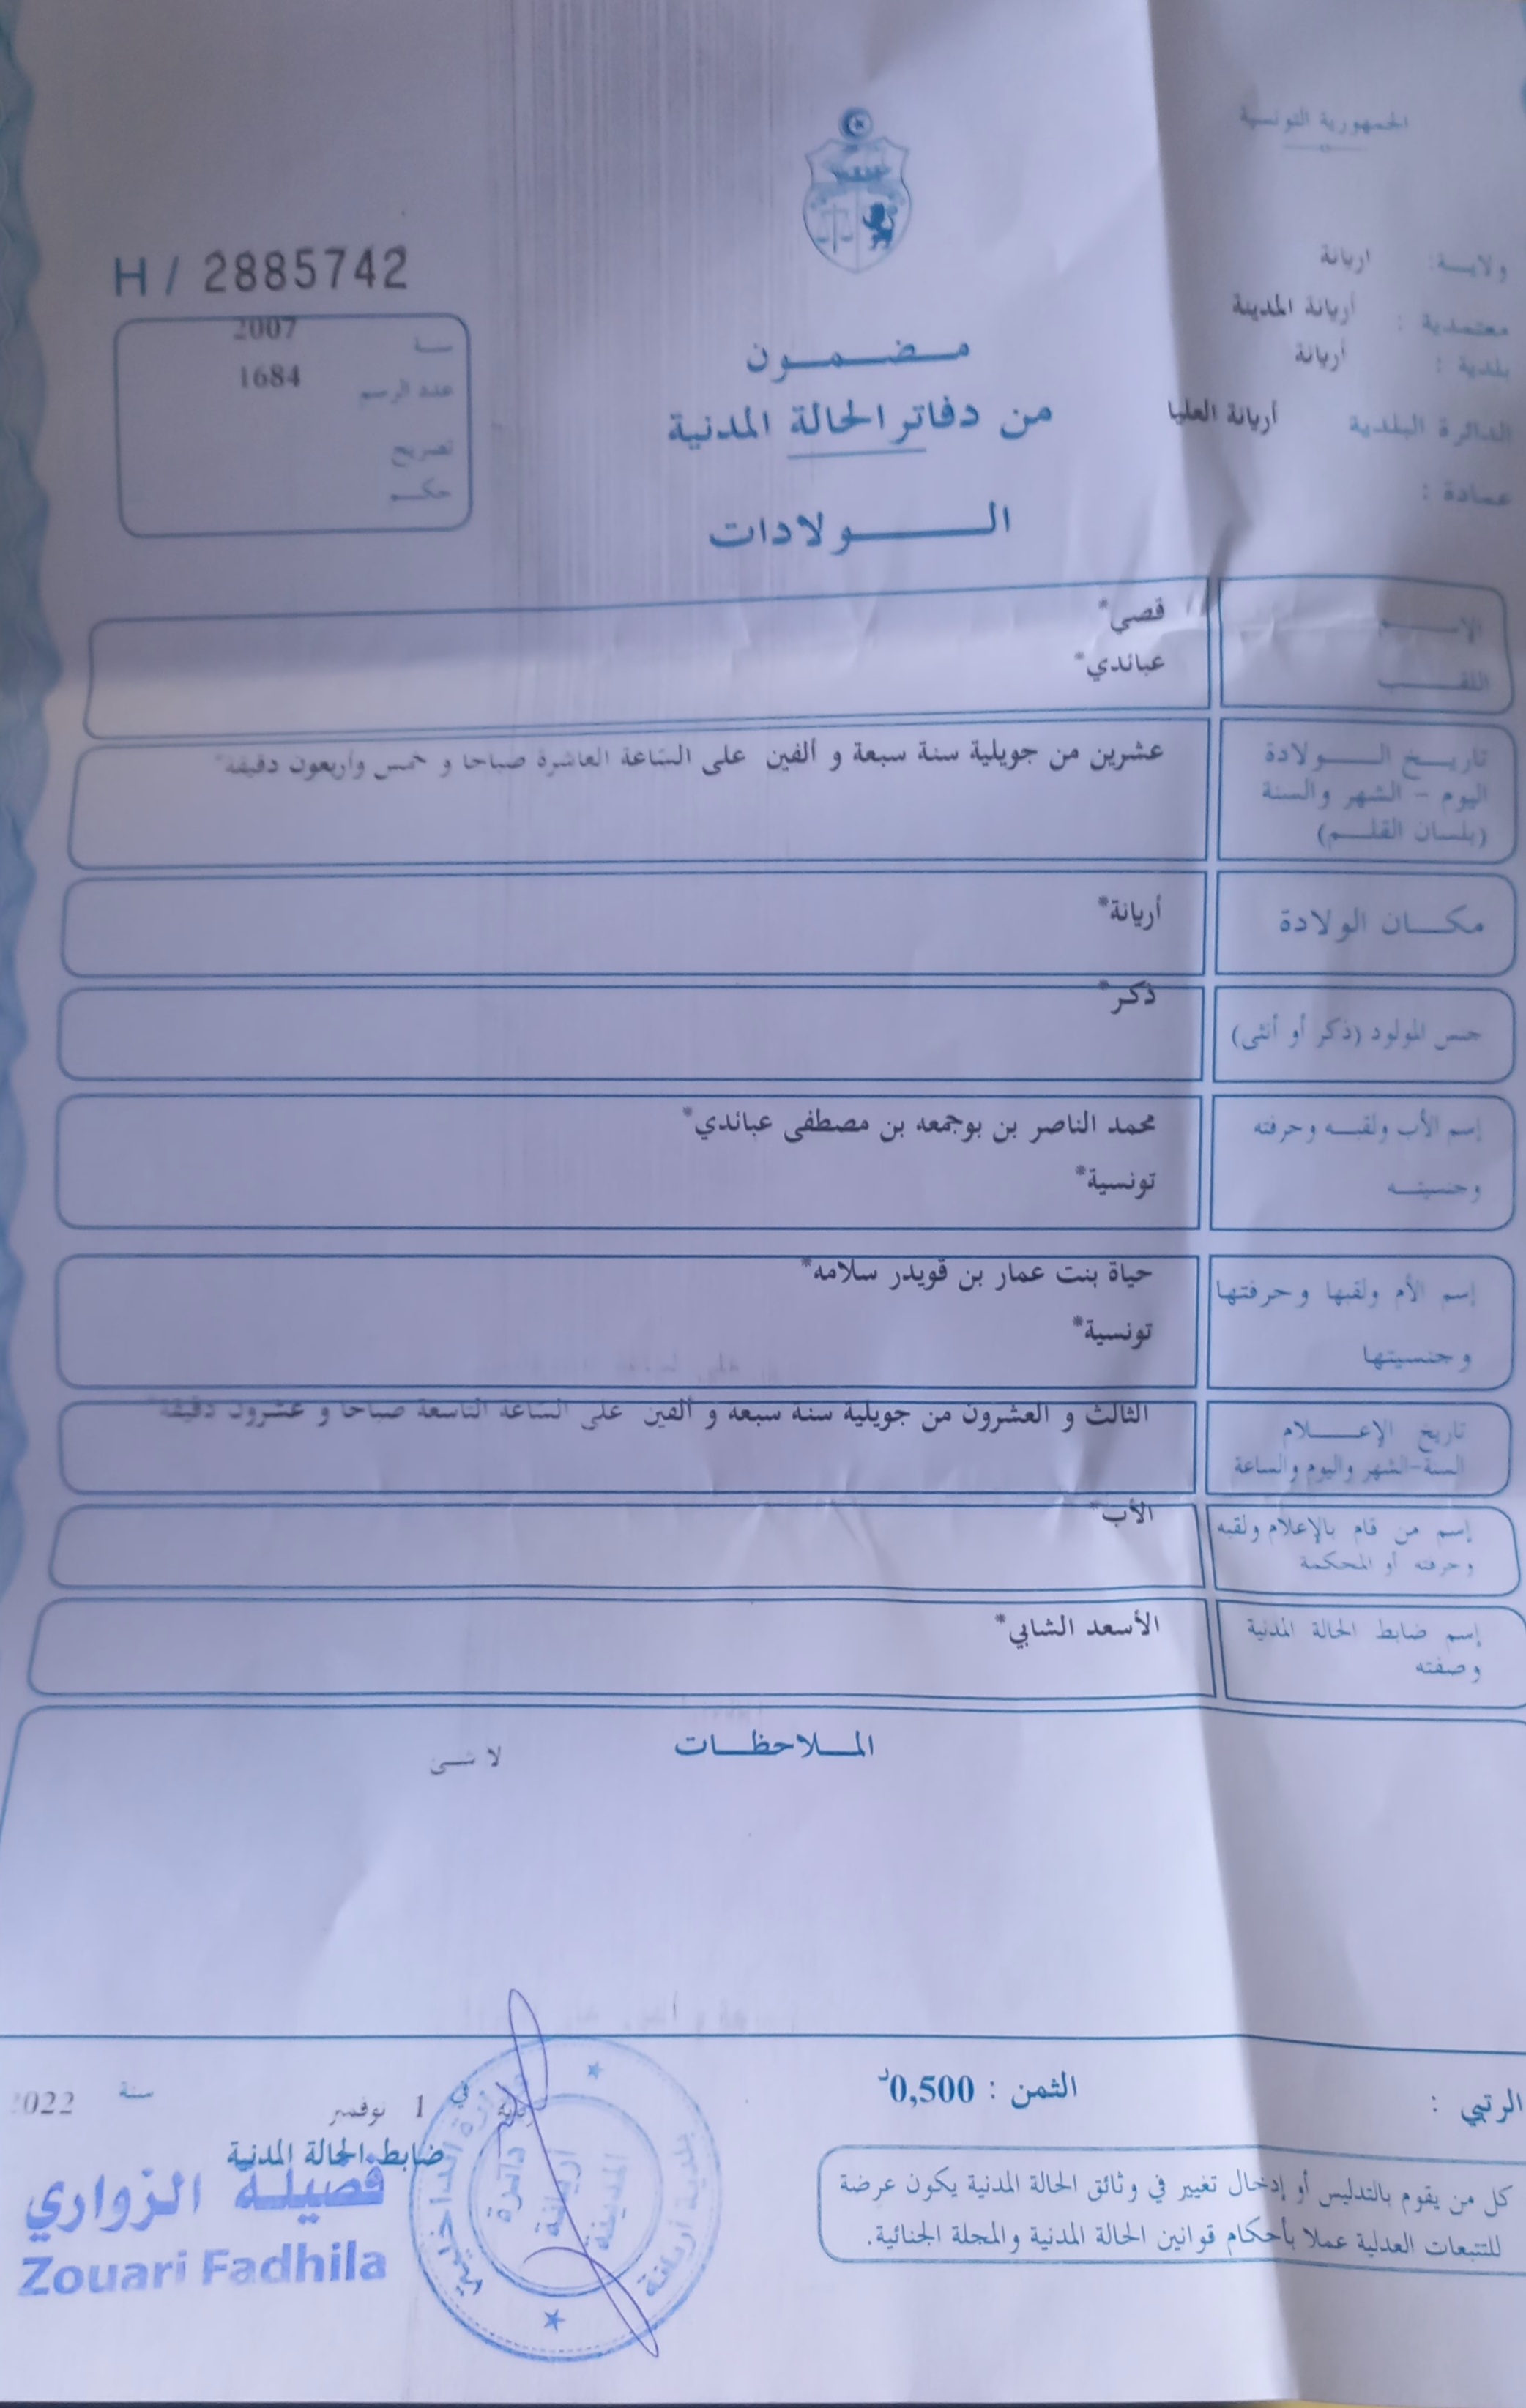 الجمهورية التونسية
ولاية: اريانة
معتمدية : أريانة المدينة
بلدية : أريانة
الدائرة البلدية أريانة العليا
عمادة :
H / 2885742
سنة 2007
عدد الرسم 1684
تصريح
حكم
مضمون
من دفاتر الحالة المدنية
الولادات
الاسم قصي*
اللقب عباندي*
تاريخ الولادة عشرين من جويلية سنة سبعة و ألفين على الساعة العاشرة صباحا و خمس وأربعون دقيقة*
اليوم - الشهر والسنة
(بلسان القلم)
مكان الولادة أريانة*
جنس المولود (ذكر أو أنثى) ذكر*
إسم الأب ولقبه وحرفته محمد الناصر بن بوجمعه بن مصطفى عباندي*
وجنسيته تونسية*
إسم الأم ولقبها وحرفتها حياة بنت عمار بن قويدر سلامه*
وجنسيتها تونسية*
تاريخ الإعلام الثالث و العشرون من جويلية سنة سبعة و ألفين على الساعة التاسعة صباحا و عشرون دقيقة*
السنة-الشهر واليوم والساعة
إسم من قام بالإعلام ولقبه الأب*
وحرفته أو المحكمة
إسم ضابط الحالة المدنية الأسعد الشابي*
وصفته
الملاحظات
لا شىء
الرتبي :
الثمن : 0,500د
كل من يقوم بالتدليس أو إدخال تغيير في وثائق الحالة المدنية يكون عرضة
للتتبعات العدلية عملا بأحكام قوانين الحالة المدنية والمجلة الجنائية.
في 1 نوفمبر سنة 2022
ضابط الحالة المدنية
فضيلة الزواري
Zouari Fadhila
وزارة الداخلية
بلدية أريانة
دائرة
أريانة
المدينة